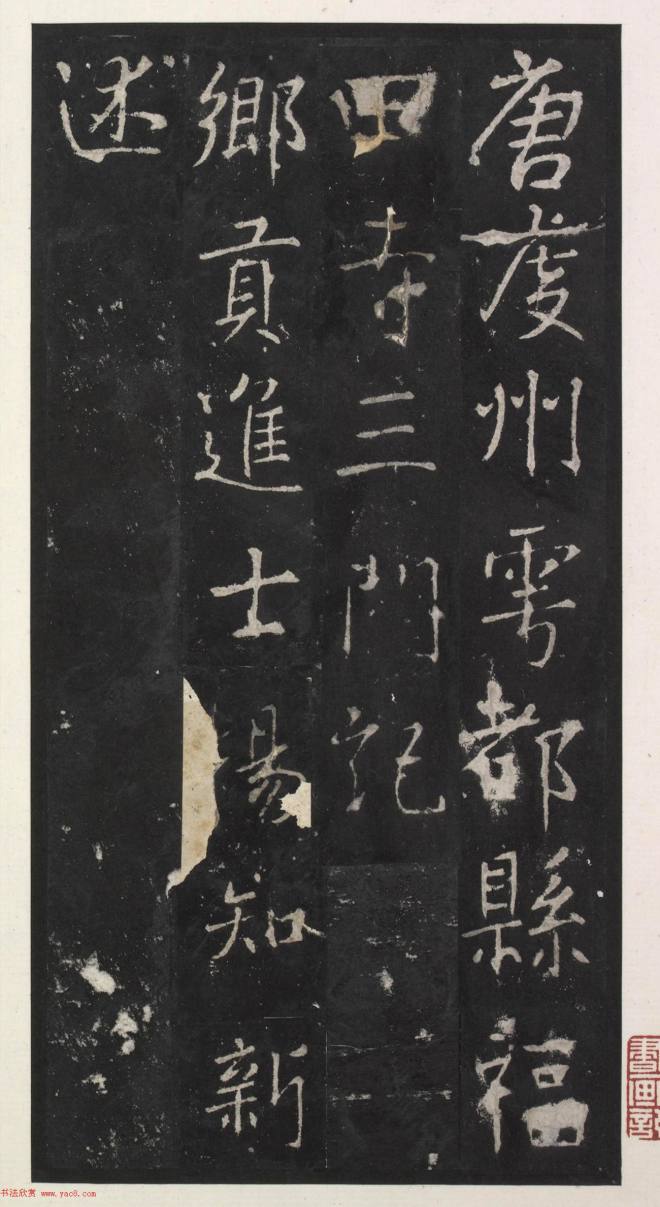 唐虔州雩都縣福
田寺三門記
鄉貢進士楊知新
述
書法欣赏 www.yac8.com